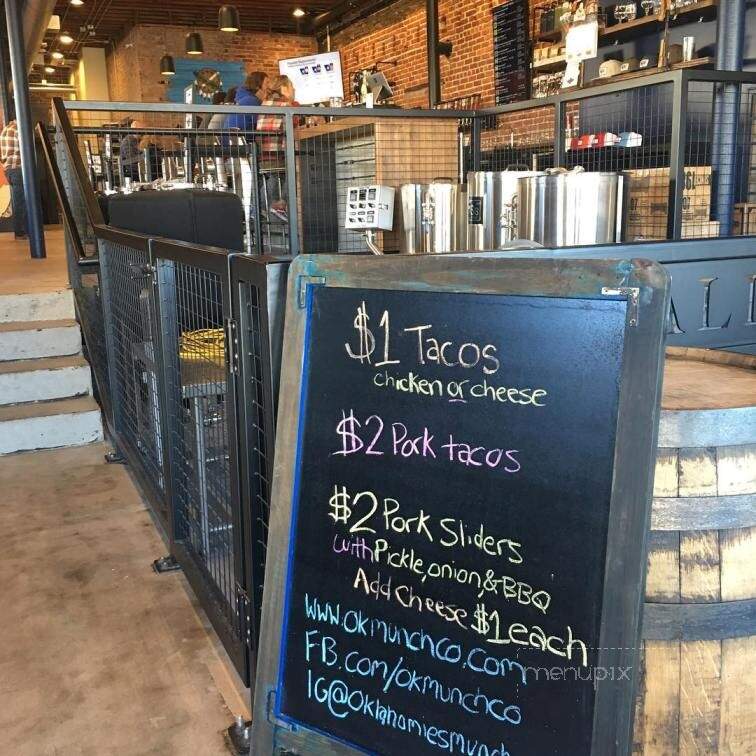 $1 Tacos
chicken or cheese
$2 Pork tacos
$2 Pork Sliders
with Pickle, onion, & BBQ
Add Cheese $1 each
www.okmunchco.com
FB.com/okmunchco
IG@oklahomiesmunch
menupix